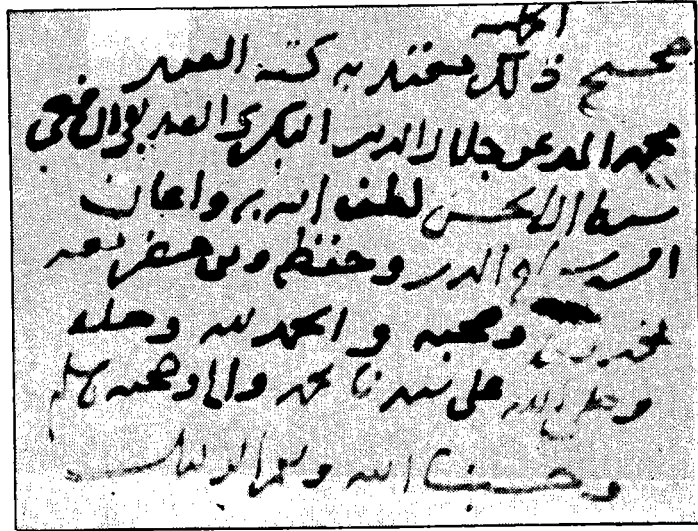 صحيح ذلك معتد به كتبه الفقير
محمد المدعو جلال الدين البكري
سبط آل الحسن لطف الله به واعان
الدين وحفظ ومن حضر معه
وصحبه والحمد لله وحده
وصلى الله على سيدنا محمد واله وصحبه وسلم
وحسبنا الله ونعم الوكيل